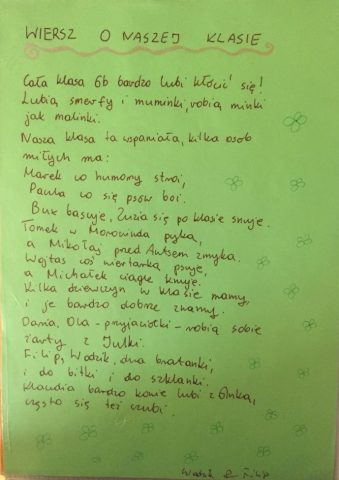 WIERSZ O NASZEJ KLASIE
Cała klasa 6b bardzo lubi kłócić się!
Lubią smerfy i muminki, robią minki
jak malinki.
Nasza klasa ta wspaniała, kilka osób
miłych ma:
Marek co humory stroi,
Paula co się psów boi.
Bux basuje, Zuzia się po klasie snuje.
Tomek w Morowinda pyka,
a Mikołaj przed Antsem zmyka.
Wojtas coś wiertarką psuje,
a Michałek ciągle knuje.
Kilka dziewczyn w klasie mamy,
i je bardzo dobrze znamy.
Daria, Ola - przyjaciółki - robią sobie
żarty z Julki.
Filip, Wodzik, dwa bratanki,
i do bitki i do szklanki.
Klaudia bardzo konie lubi z Anką,
często się też czubi.
Wodzik & Filip